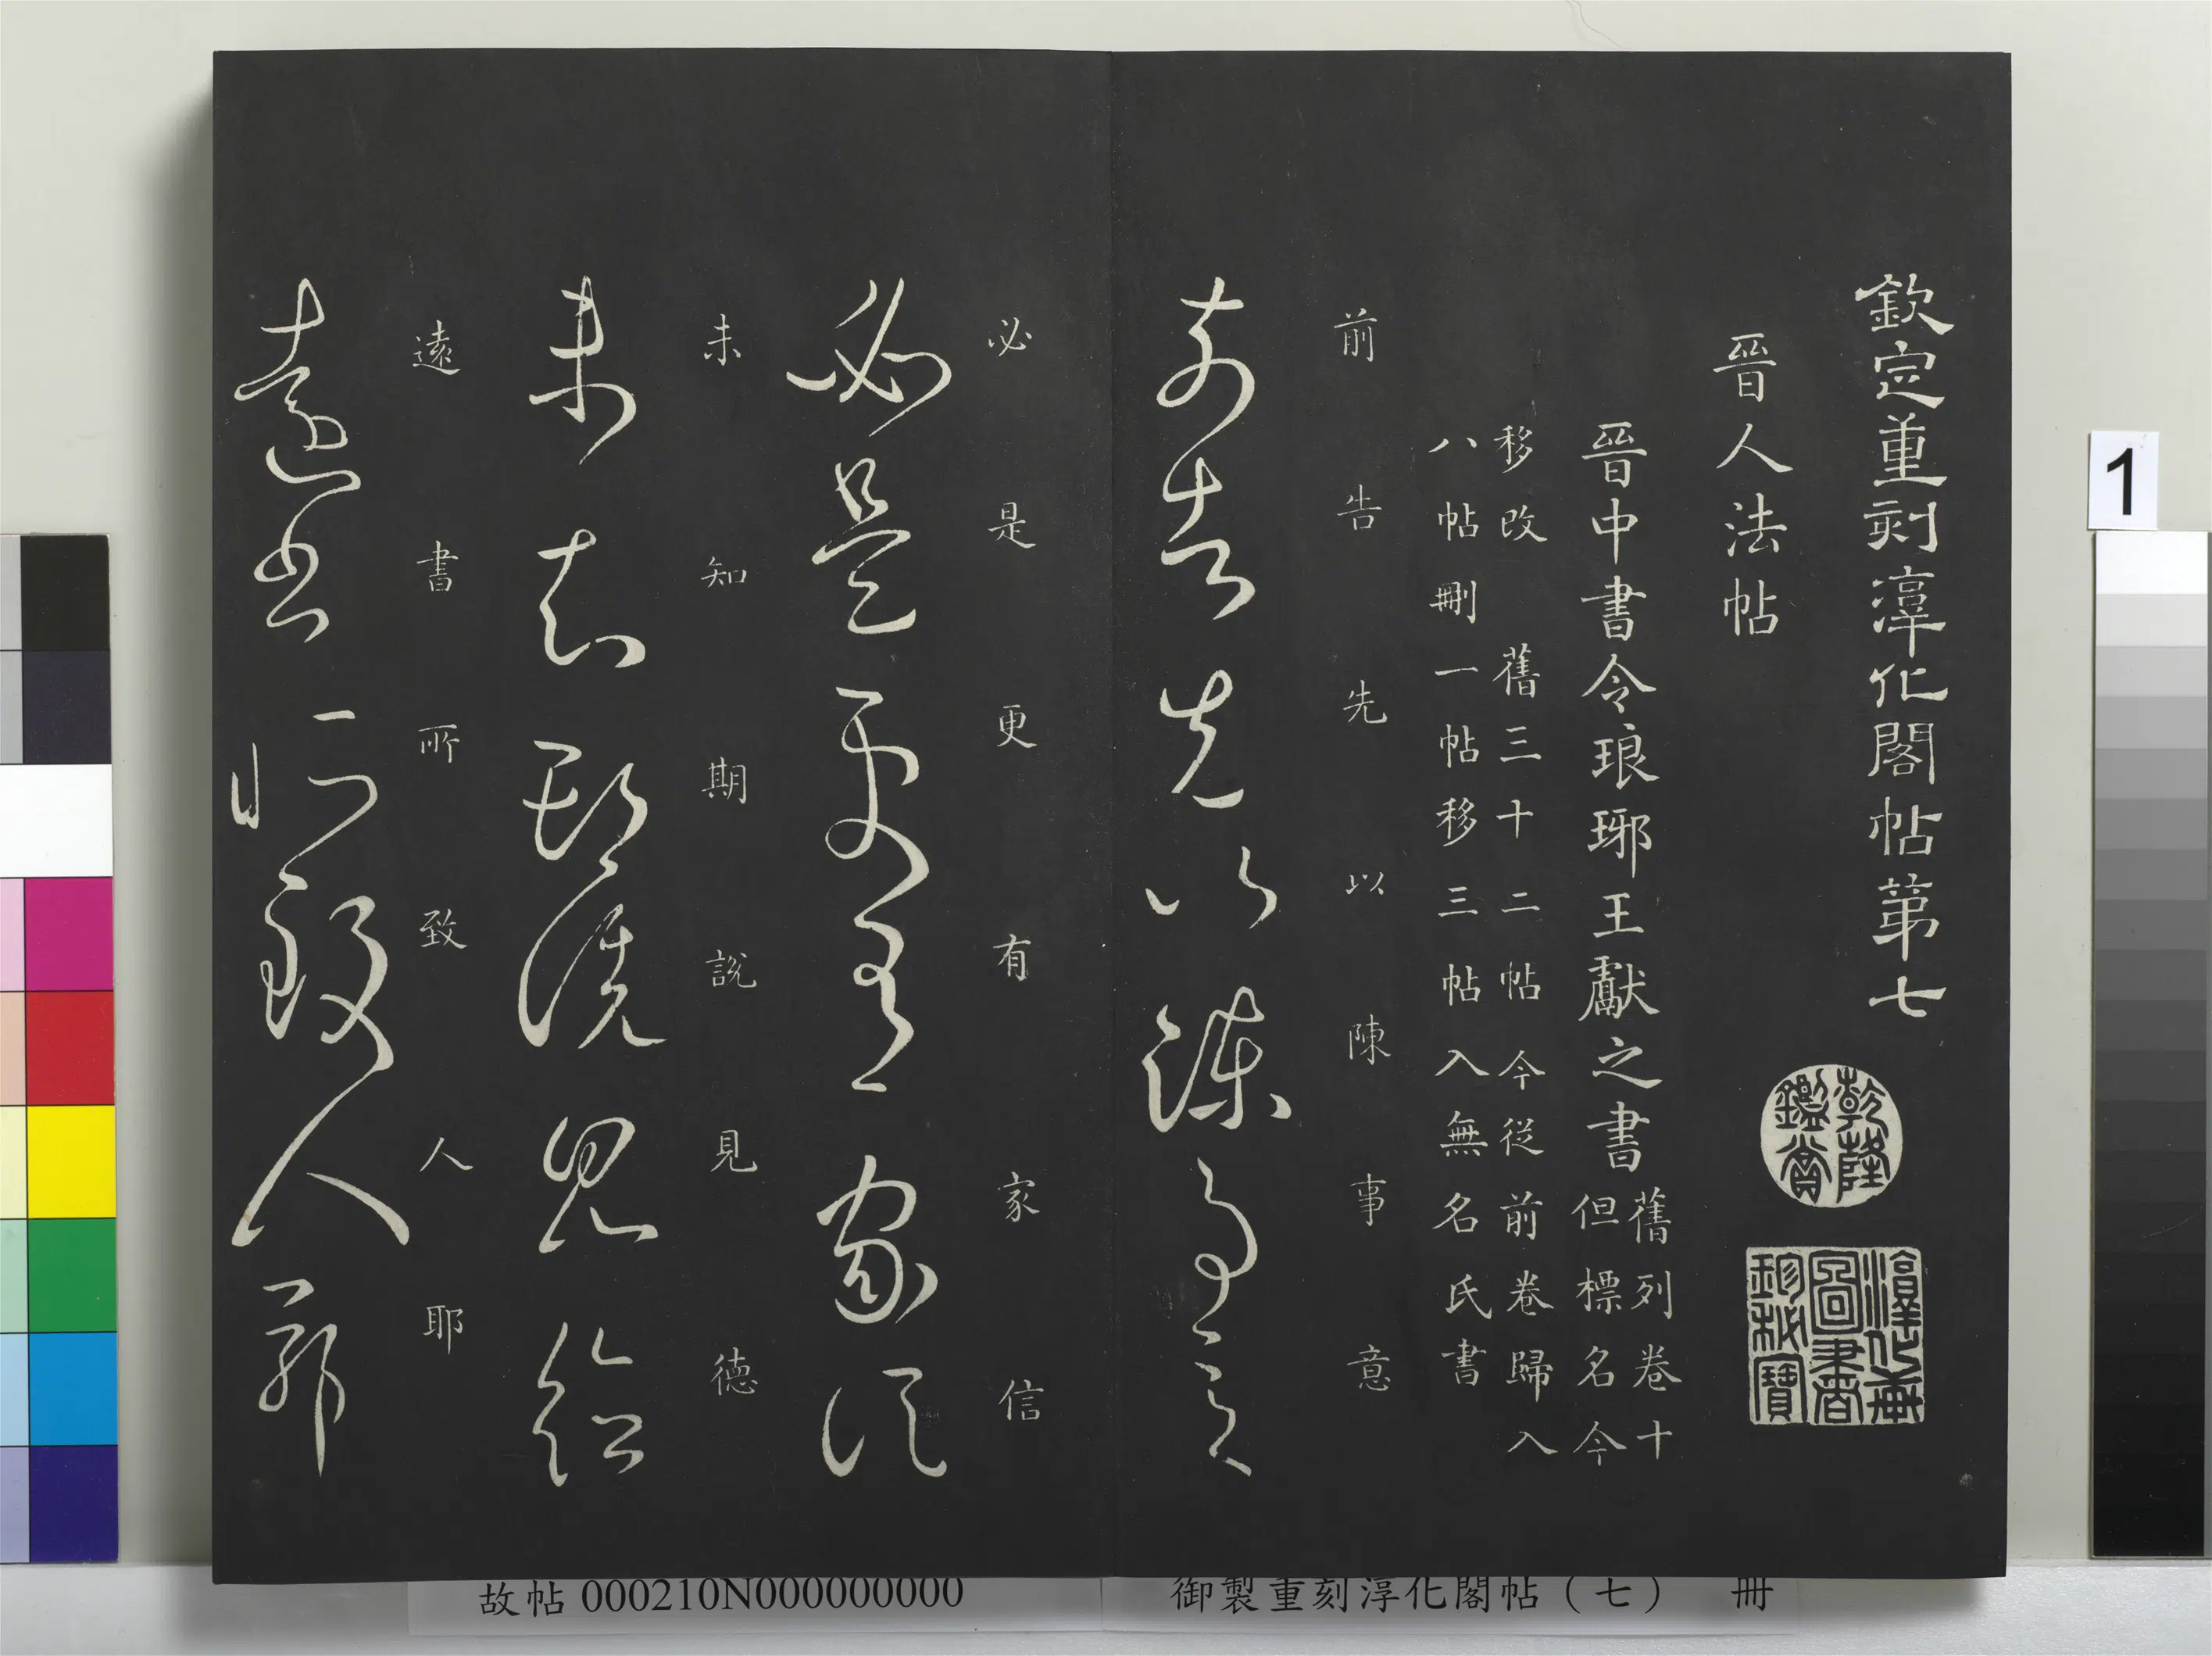 欽定重刻淳化閣帖第七
乾隆
鑑賞
淳化軒
圖書
珍秘寶
晉人法帖
晉中書令琅琊王獻之書
舊列卷十
但標名今
移改 舊三十二帖 今從前卷歸入
八帖刪一帖移三帖入無名氏書
前告先以陳事意
前告先以陳事意
必是更有家信
必是更有家信
未知期說見德
未知期說見德
遠書所致人耶
遠書所致人耶
1
御製重刻淳化閣帖（七） 冊
故帖 000210N000000000